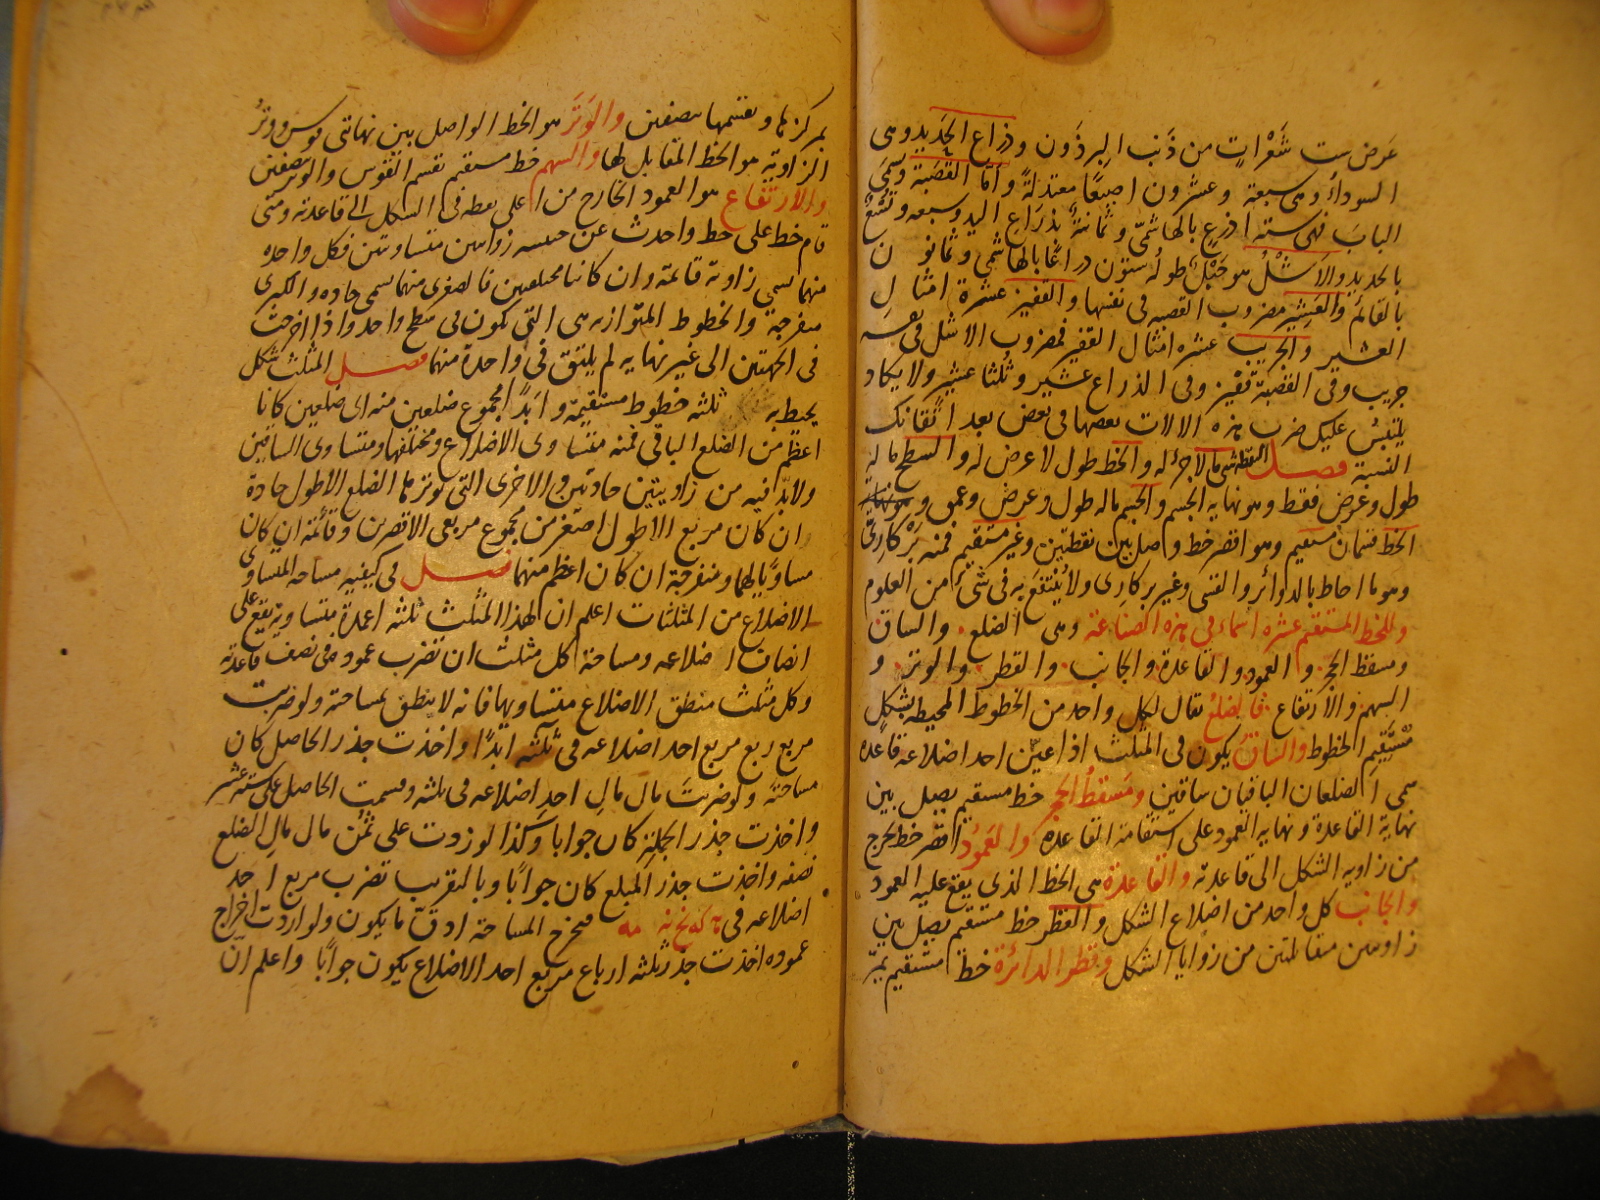 عرض ست شعرات من ذنب البرذون وذراع الحديد وهى
السوداء وهى سبعة وعشرون اصبعًا معتدلة وامّا القصبة وتسمى
الباب فهى ستة اذرع بالهاشمى وثمانية بذراع اليد وسبعة وتسع
بالحديد والاشل هو حبل طوله ستون ذراعًا بالهاشمى وثمانون
بالقائم والعشير مضروب القصبه فى نفسها والقفيز عشرة امثال
العشير والجريب عشره امثال القفيز فمضروب الاشل فى نفسه
جريب وفى القصبة قفيز وفى الذراع عشير وثلثا عشير ولا يكاد
يلتبس عليك ضرب هذه الالات بعضها فى بعض بعد اتقانك
النسبة فصل النقطة شى ما لا جزء له والخط طول لا عرض له والسطح ما له
طول وعرض فقط وهو نهايه الجسم والجسم ماله طول وعرض وعمق
الخط قسمان مستقيم وهو اقصر خط واصل بين نقطتين وغير مستقيم فمنه بركارى
وهو ما احاط بالدوائر والقسى وغير بركارى ولا ينتفع به فى شئ من العلوم
وللخط المستقيم عشره اسماء فى هذه الصناعة وهى الضلع والساق
ومسقط الحجر والعمود والقاعدة والجانب والقطر والوتر و
السهم والارتفاع فالضلع يقال لكل واحد من الخطوط المحيطه بشكل
مستقيم الخطوط والساق يكون فى المثلث اذا عين احد اضلاعه قاعدة
سمى الضلعان الباقيان ساقين ومسقط الحجر خط مستقيم يصل بين
نهاية القاعدة ونهاية العمود على استقامة القاعدة والعمود اقصر خط يخرج
من زاويه الشكل الى قاعدته والقاعدة هى الخط الذى يقع عليه العمود
والجانب كل واحد من اضلاع الشكل والقطر خط مستقيم يصل بين
زاويتين متقابلتين من زوايا الشكل وقطر الدائرة خط مستقيم يمر
بمركزها ويقسمها بنصفين والوتر هو الخط الواصل بين نهايتى قوس ووتر
الزاوية هو الخط المقابل لها والسهم خط مستقيم يقسم القوس والوتر بنصفين
والارتفاع هو العمود الخارج من اعلى نقطه فى الشكل الى قاعدته ومتى
قام خط على خط واحدث عن جنبيه زاويتين متساويتين فكل واحده
منهما تسمى زاوية قائمة وان كانتا مختلفتين فالصغرى منهما تسمى حاده والكبرى
منفرجة والخطوط المتوازيه هى التى تكون فى سطح واحد واذا اخرجت
فى الجهتين الى غير نهايه لم يلتق فى واحدة منهما فصل المثلث شكل
يحيط به ثلثه خطوط مستقيمة وابدًا مجموع ضلعين منه اى ضلعين كانا
اعظم من الضلع الباقى فمنه متساوى الاضلاع ومختلفها ومتساوى الساقين
ولا بدّ فيه من زاويتين حادتين والاخرى التى يوترها الضلع الاطول حادة
ان كان مربع الاطول اصغر من مجموع مربعى الاقصرين وقائمة ان كان
مساويًا لهما ومنفرجة ان كان اعظم منهما فصل فى كيفيه مساحه المتساوى
الاضلاع من المثلثات اعلم ان لهذا المثلث ثلثه اعمدة متساويه يقع على
انصاف اضلاعه ومساحة كل مثلث ان تضرب عموده فى نصف قاعدته
وكل مثلث منطق الاضلاع متساويها فانه لا ينطق بمساحته ولو ضربت
مربع ربع مربع احد اضلاعه فى ثلثه ابدًا واخذت جذر الحاصل كان
مساحته ولو ضربت مال مال احد اضلاعه فى ثلثه وقسمت الحاصل على ستة عشر
واخذت جذر الجملة كان جوابا وكذا لو زدت على ثمن مال مال الضلع
نصفه واخذت جذر المبلغ كان جوابًا وبالتقريب تضرب مربع احد
اضلاعه فى فيخرج المساحة ادق ما يكون ولو اردت اخراج
عموده اخذت جذر ثلثه ارباع مربع احد الاضلاع يكون جوابًا واعلم ان